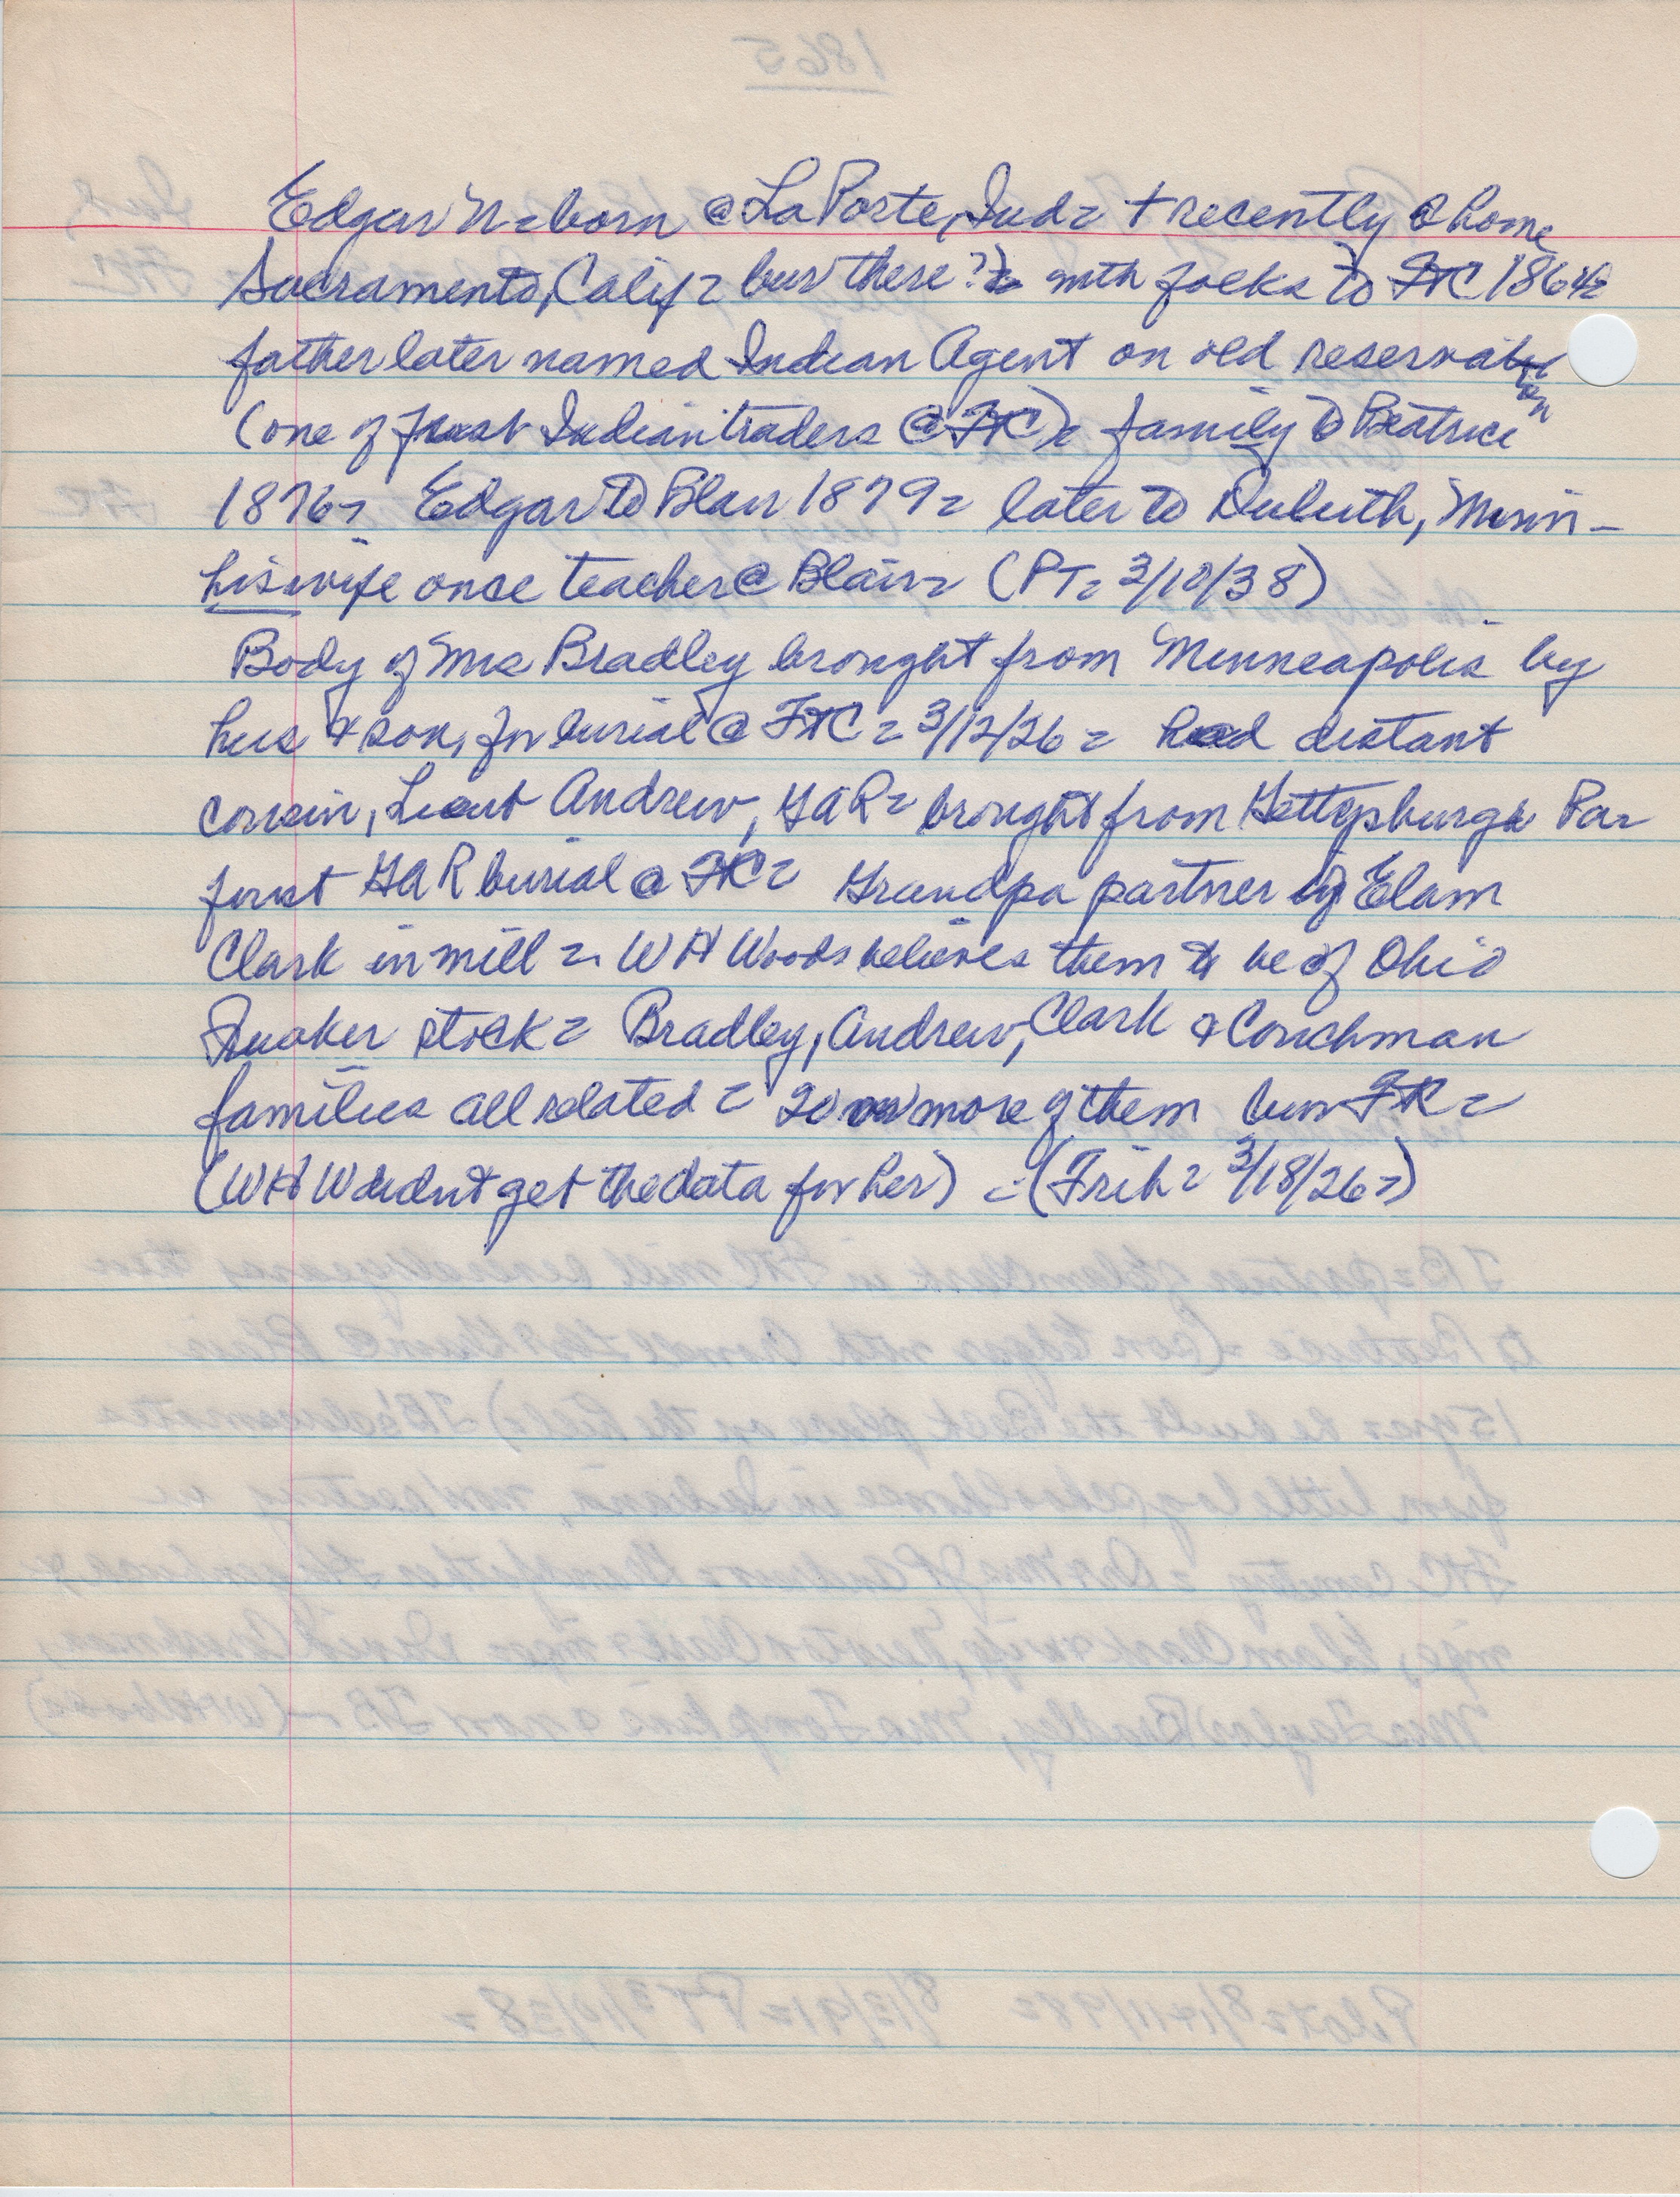 Edgar N = born @ La Porte, Ind = + recently @ home
Sacramento, Calif = bur there? = with folks to FtC 1864 =
father later named Indian Agent on old reservation
(one of first Indian traders @ FtC) = family to Beatrice
1876 = Edgar to Blair 1879 = later to Duluth, Minn -
his wife once teacher @ Blair = (PT = 3/10/38)
Body of Mrs Bradley brought from Minneapolis by
hus + son, for burial @ FtC = 3/12/26 = had distant
cousin, Lieut Andrew, GAR = brought from Gettysburg Pa =
first GAR burial @ FtC = Grandpa partner of Elam
Clark in mill = WH Woods believes them to be of Ohio
Quaker stock = Bradley, Andrew, Clark & Couchman
families all related = 20 or more of them bur FtC =
(WHW didnt get the data for her) = (Trib = 3/18/26 =)